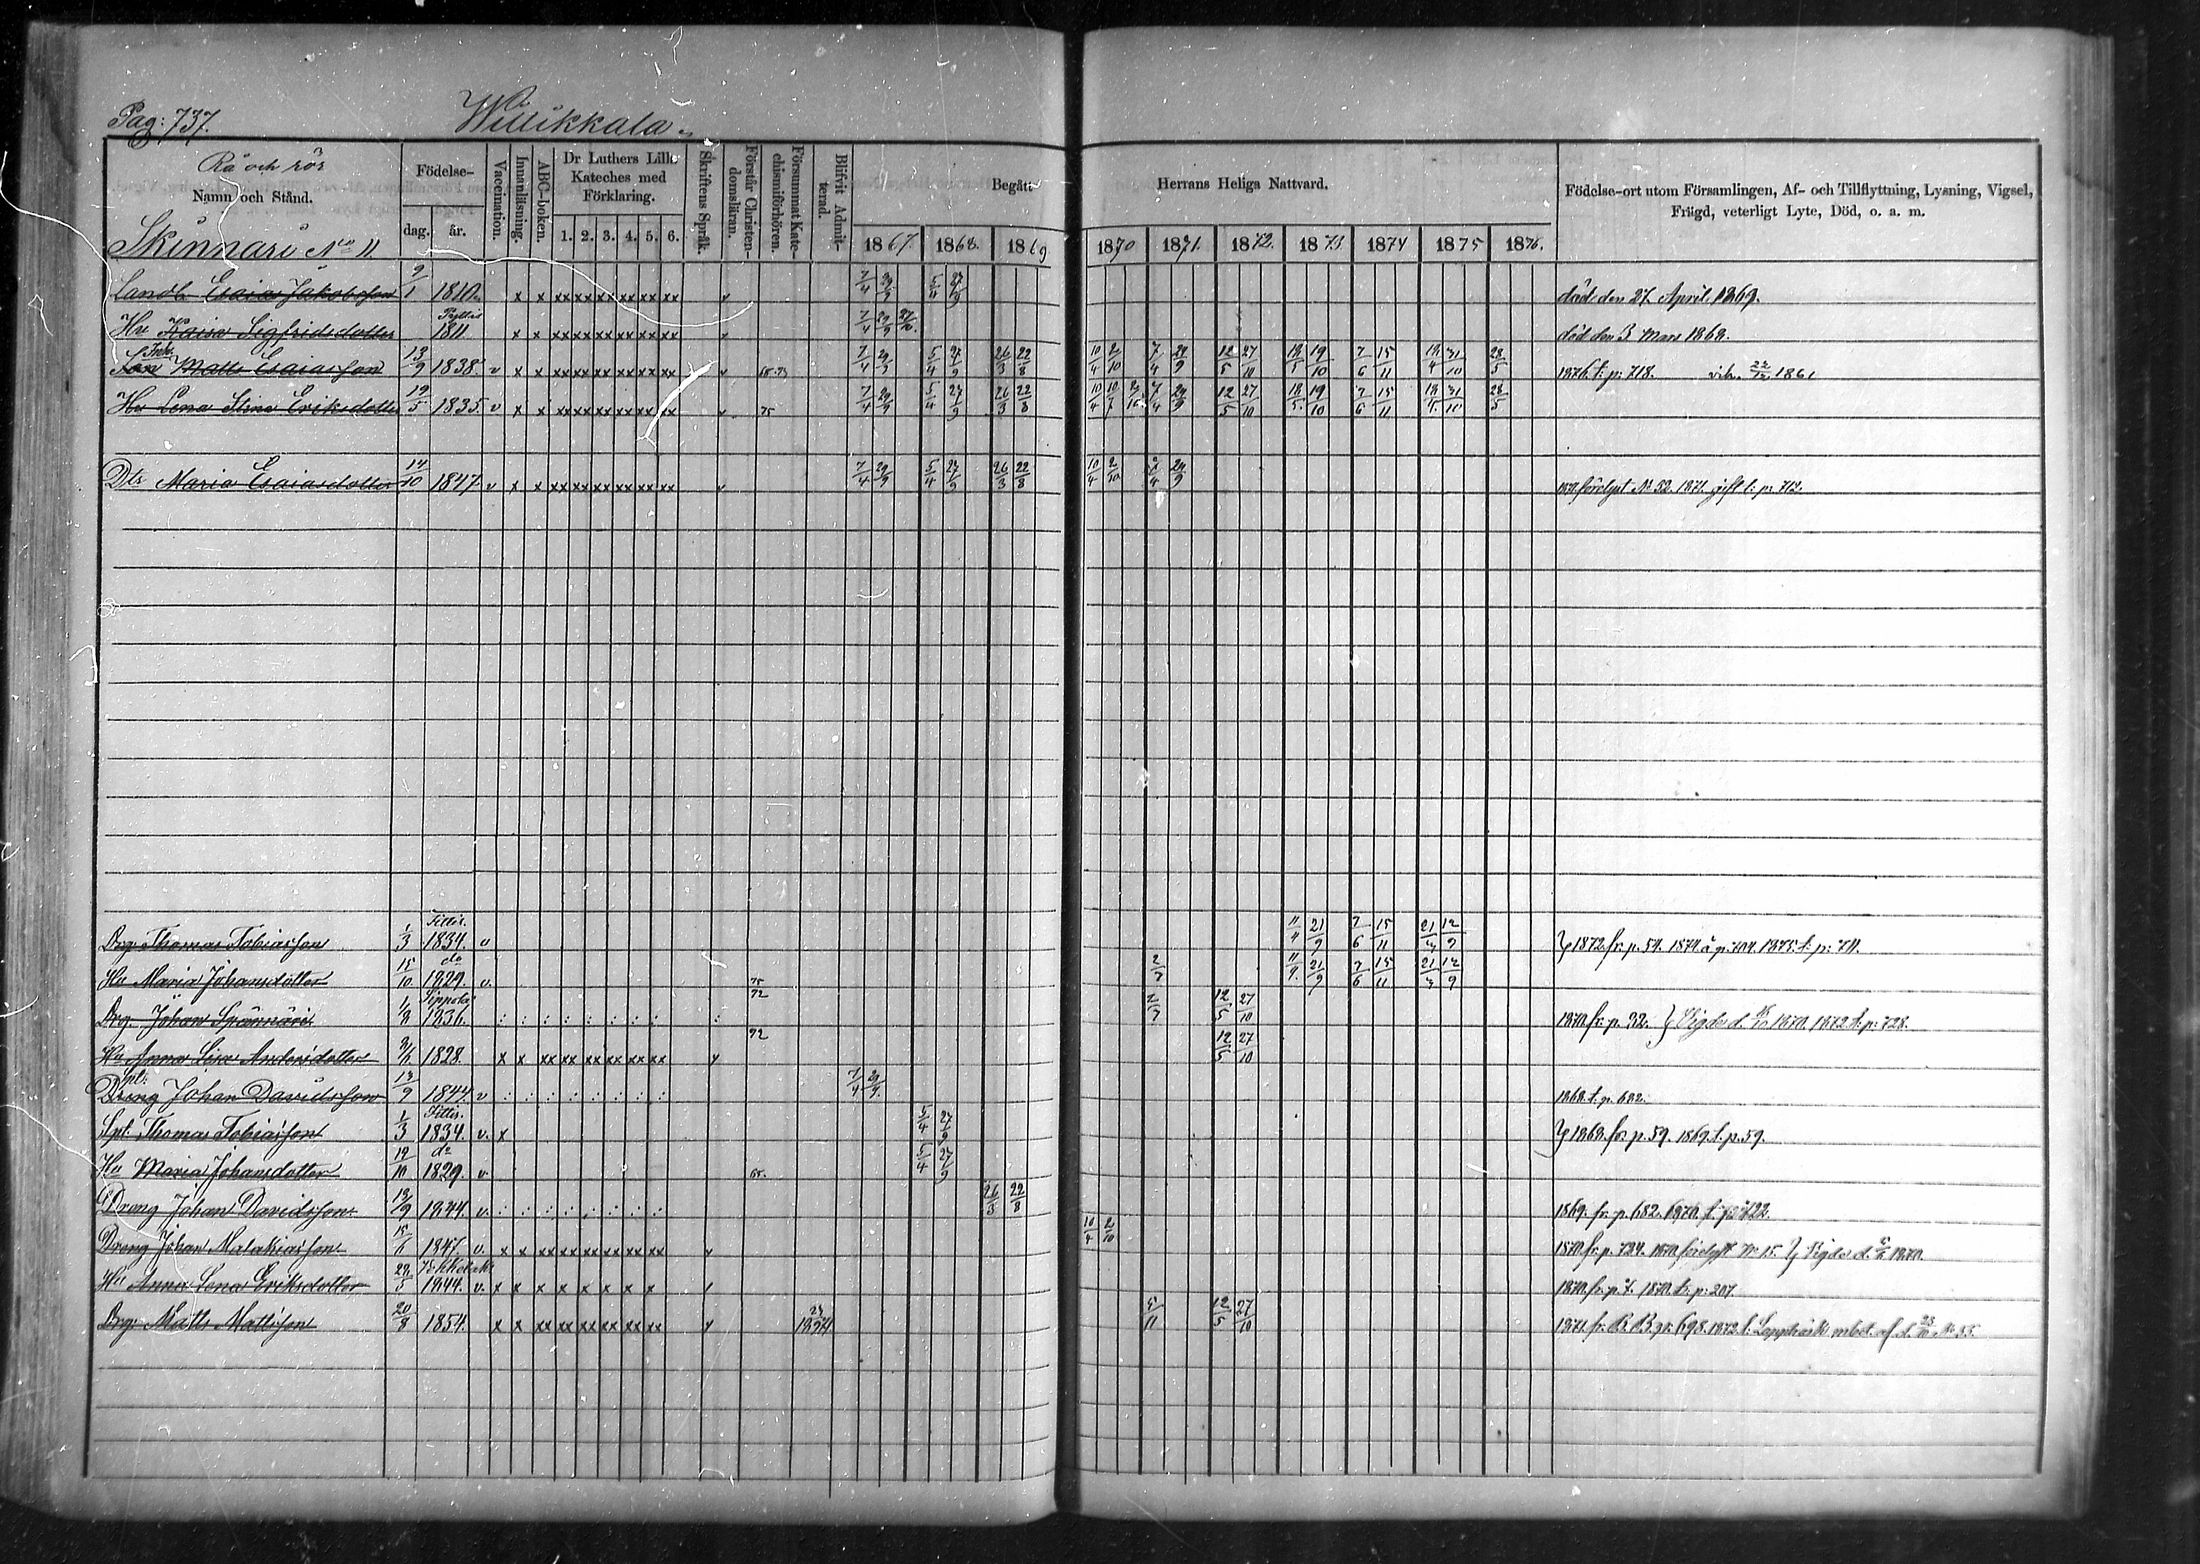 Pag: 737.
Willikkala.
Rå och rör
Namn och Stånd.
Skinnari No 11
Födelse-
dag. år.
Vaccination.
Innanläsning.
ABC-boken.
Dr Luthers Lilla
Kateches med
Förklaring.
1. 2. 3. 4. 5. 6.
Skriftens Språk.
Förstår Christen-
domsläran.
Försummat Kate-
chismiförhören.
Blifvit Admit-
terad.
Begått
1867. 1868. 1869
Herrans Heliga Nattvard.
1870 1871. 1872. 1873. 1874 1875 1876.
Födelse-ort utom Församlingen, Af- och Tillflyttning, Lysning, Vigsel,
Frägd, veterligt Lyte, Död, o. a. m.
Landb. Esaias Jakobsson 9/1 1810. x x xx xx xx xx xx xx v 7/4 29/9 5/4 27/9 död den 27 April 1869.
Pyttis
Hu Kaisa Sigfridsdotter 1811. x x xx xx xx xx xx xx v 7/4 29/9 27/10. död den 3 Mars 1868.
Son Matts Esaiasson 13/9 1838. v x x xx xx xx xx xx xx v 68.73 7/4 29/9 5/4 27/9 26/3 22/8 10/4 2/10 7/4 24/9 12/5 27/10 18/5 19/10 7/6 15/11 18/4 31/10 28/5 1876 t. p: 718. 1861
Hu Lena Stina Eriksdotter 19/5 1835. v x x xx xx xx xx xx xx v 75 7/4 29/9 5/4 27/9 26/3 22/8 10/4 10/7 2/10 7/4 24/9 12/5 27/10 18/5. 19/10 7/6 15/11 18/4 31/10 28/5
Dtr Maria Esaiasdotter 14/10 1847 v x x xx xx xx xx xx xx v 7/4 29/9 5/4 27/9 26/3 22/8 10/4 2/10 7/4 24/9 förelyst No 52. 1871. gift t: p: 712.
Drg. Thomas Tobiasson 1/3 1834. v 11/4 21/9 7/6 15/11 21/3 12/9 1872 fr. p. 59. 1874 å p. 704. 1875. t: p: 711.
do
Hu Maria Johansdotter 15/10 1829. v. 75 2/7 11/4 21/9 7/6 15/11 21/3 12/9
Sippola
Drg. Johan Spännäri 1/8 1836. : : : : : : : : : 72 2/7 12/5 27/10 1870 fr. p. 32. } Vigde d. 1870. 1872 t. p: 728.
Hu Anna Lisa Andersdotter 1828. x x xx xx xx xx xx xx v 72 12/5 27/10
Spl:
Dreng Johan Davidsson 13/9 1844. v : : : : : : : : 7/4 29/9. 1868. t. p. 682.
Spl. Thomas Tobiasson 1/3 1834. v. x 5/4 27/9 } 1868. fr. p. 59. 1869. t. p. 59.
do
Hu Maria Johansdotter 1829. v 68. 5/4 27/9
Dreng Johan Davidsson. 13/9 1844. v. : : : : : : : : 26/3 22/8 1869. fr. p. 682. 1870.
Dreng Johan Malakiasson 1847. v. x x xx xx xx xx xx xx v 10/4 2/10 1870 fr. p. 724. 1870 förelyst No 15. } Vigde d. 1870.
Hu Anna Lena Eriksdotter 29/5 1844. v. x x x x x x x x 1870 fr. p. 1870. t: p: 207.
Drg. Matts Mattsson 20/8 1854. x x xx xx xx xx xx xx v 5/11 12/5 27/10 1871 fr. B. B. p. 698. 1872. t. Lappträsk m. bet. af d. No 35.